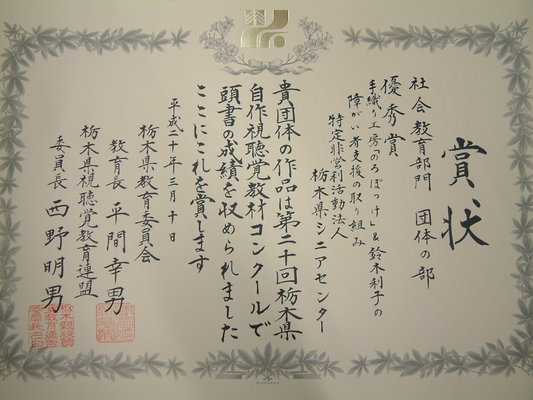 賞状
社会教育部門 団体の部
優秀賞
手織り工房「のろぼっけ」&鈴木利子の
障がい者支援の取り組み
特定非営利活動法人
栃木県シニアセンター
貴団体の作品は第二十回栃木県
自作視聴覚教材コンクールで
頭書の成績を収められました
ここにこれを賞します
平成二十年三月十日
栃木県教育委員会
教育長 平間幸男
栃木県視聴覚教育連盟
委員長 西野明男